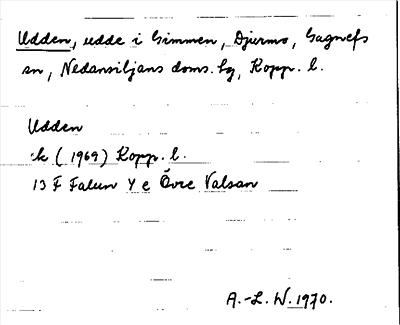 Udden, udde i Gimmen, Djurmo, Gagnefs
sn, Nedansiljans doms. lg, Kopp. l.
Udden
ek (1969) Kopp. l.
13 F Falun Y e Övre Valsan
A.-L. W. 1970.